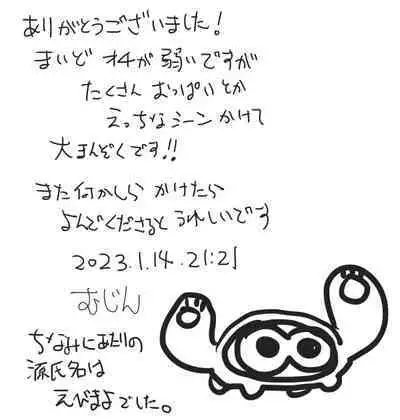 ありがとうございました!
まいど オチが 弱いですが
たくさん おっぱい とか
えっちなシーン かけて
大まんぞくです!!
また何かしら かけたら
よんでくださると うれしいです
2023.1.14.21:21
むじん
ちなみにあたりの
源氏名は
えびまよでした。